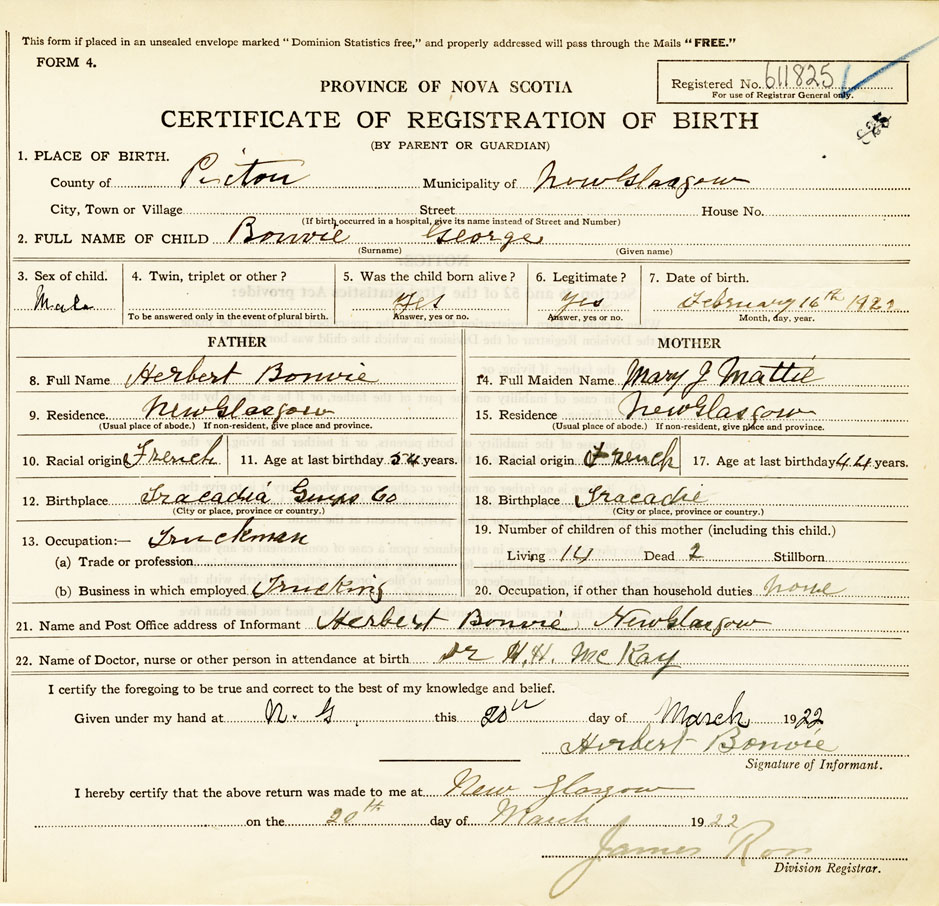 This form if placed in an unsealed envelope marked "Dominion Statistics free," and properly addressed will pass through the Mails "FREE."
FORM 4.
Registered No. 611825
For use of Registrar General only.
PROVINCE OF NOVA SCOTIA
CERTIFICATE OF REGISTRATION OF BIRTH
(BY PARENT OR GUARDIAN)
1. PLACE OF BIRTH.
County of Pictou Municipality of New Glasgow
City, Town or Village Street House No.
(If birth occurred in a hospital, give its name instead of Street and Number)
2. FULL NAME OF CHILD Bonvie George
(Surname) (Given name)
3. Sex of child. 4. Twin, triplet or other? 5. Was the child born alive? 6. Legitimate? 7. Date of birth.
Male Yes Yes February 16th 1922
To be answered only in the event of plural birth. Answer, yes or no. Answer, yes or no. Month, day, year.
FATHER MOTHER
8. Full Name Herbert Bonvie 14. Full Maiden Name Mary J Mattie
9. Residence. New Glasgow 15. Residence New Glasgow
(Usual place of abode.) If non-resident, give place and province. (Usual place of abode.) If non-resident, give place and province.
10. Racial origin French 11. Age at last birthday 54 years. 16. Racial origin French 17. Age at last birthday 44 years.
12. Birthplace Tracadia Guys Co 18. Birthplace Tracadie
(City or place, province or country.) (City or place, province or country.)
13. Occupation:— Truckman 19. Number of children of this mother (including this child.)
(a) Trade or profession Living 14 Dead 2 Stillborn
(b) Business in which employed Trucking 20. Occupation, if other than household duties None
21. Name and Post Office address of Informant Herbert Bonvie New Glasgow
22. Name of Doctor, nurse or other person in attendance at birth Dr H.H. McKay
I certify the foregoing to be true and correct to the best of my knowledge and belief.
Given under my hand at N. G. this 20th day of March 1922
Herbert Bonvie
Signature of Informant.
I hereby certify that the above return was made to me at New Glasgow
on the 20th day of March 1922
James Ross
Division Registrar.